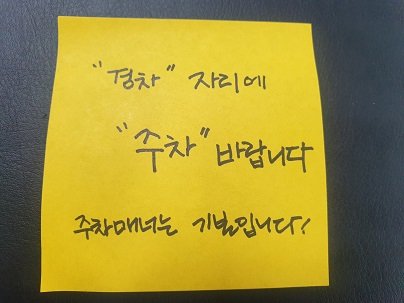 "경차" 자리에
"주차" 바랍니다
주차매너는 기본입니다!